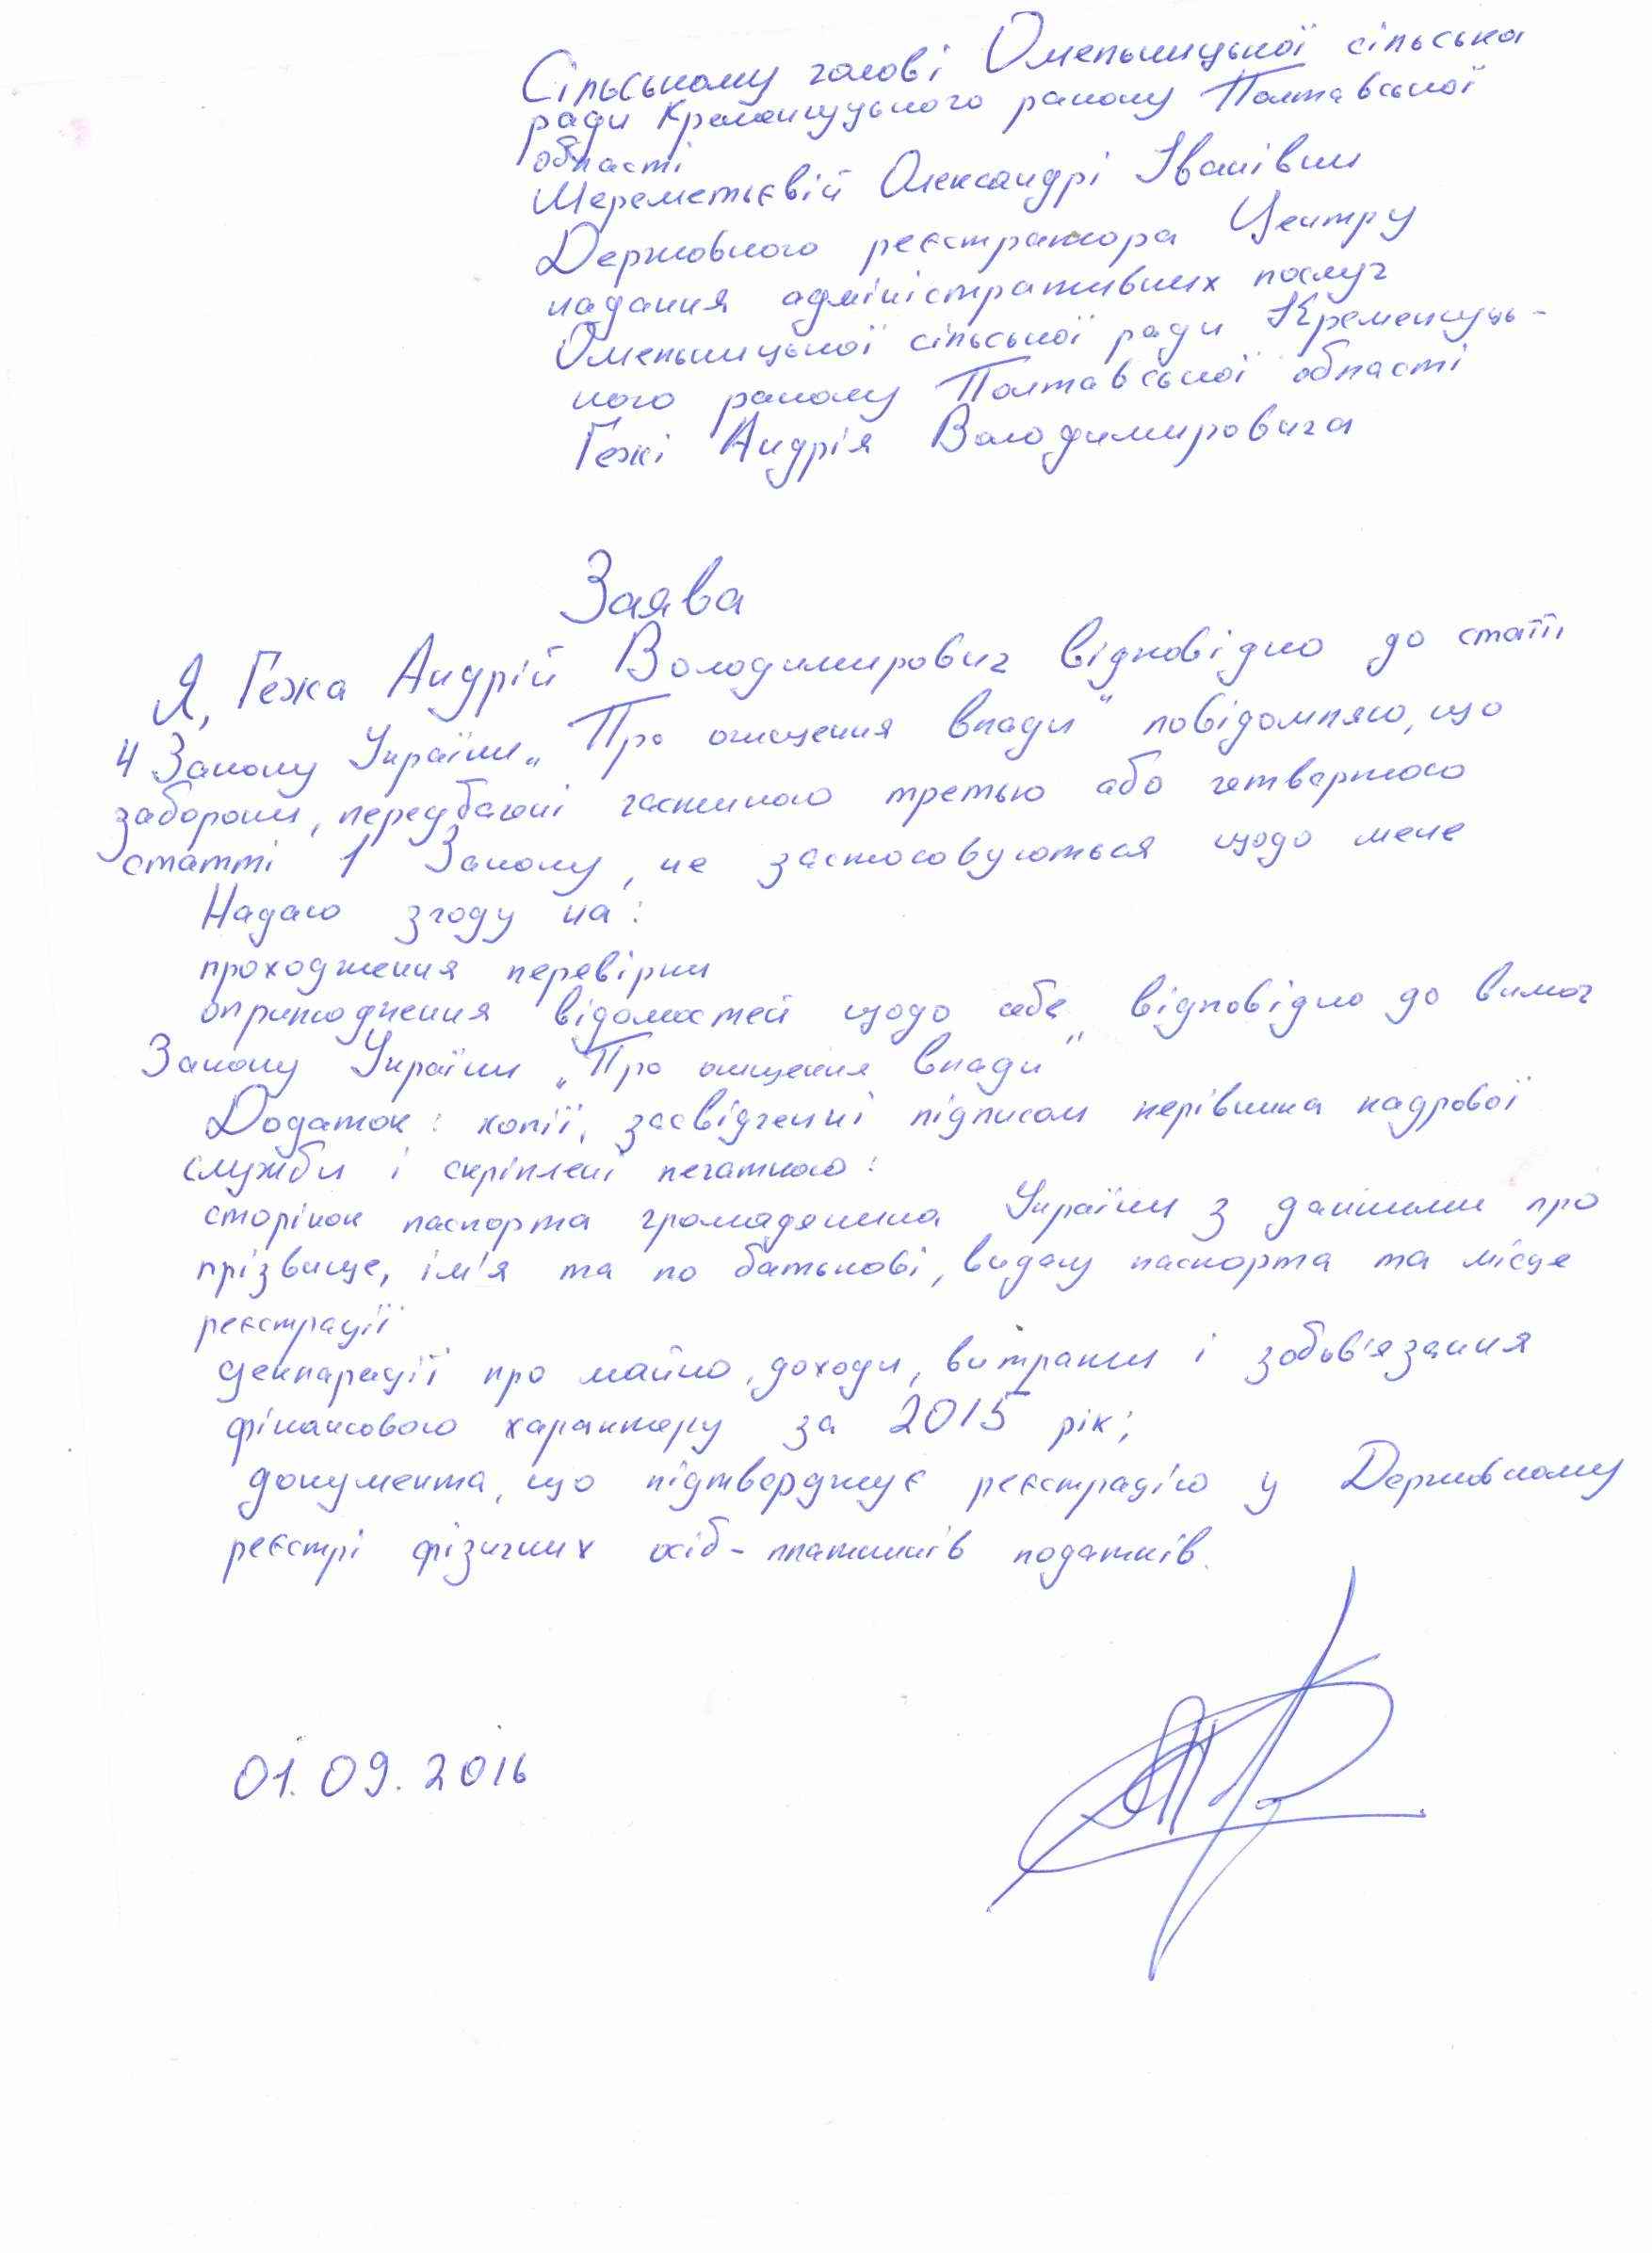 Сільському голові Омельницької сільська
ради Кременчуцького району Полтавської
області
Шереметьєвій Олександрі Іванівни
Державного реєстратора Центру
надання адміністративних послуг
Омельницької сільської ради Кременчуць-
кого району Полтавської області
Гежі Андрія Володимировича
Заява
Я, Гежа Андрій Володимирович відповідно до статті
4 Закону України „Про очищення влади" повідомляю, що
заборони, передбачені частиною третью або четвертою
статті 1 Закону, не застосовуються щодо мене
Надаю згоду на:
проходження перевірки
оприлюднення відомостей щодо себе відповідно до вимог
Закону України „Про очищення влади"
Додаток: копії, засвідченні підписом керівника кадрової
служби і скріплені печаткою:
сторінок паспорта громадянина України з данними про
прізвище, ім'я та по батькові, видачу паспорта та місце
реєстрації
декларації про майно, доходи, витрати і зобов'язання
фінансового характеру за 2015 рік;
документа, що підтверджує реєстрацію у Державному
реєстрі фізичних осіб-платників податків.
01.09.2016